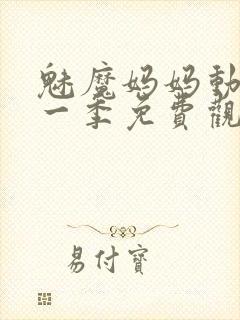 魅魔妈妈動
一季免費觀
易付寳